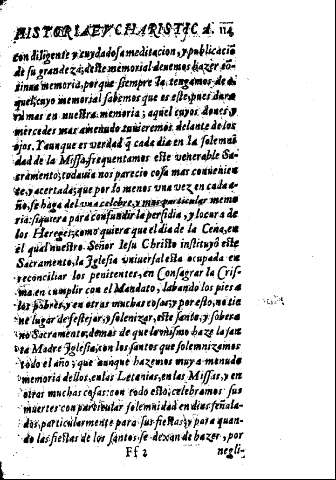 HISTORIA EVCHARISTICA. 114
con diligente y cuydadosa meditacion, y publicaciō
de su grandeza; deste memorial deuemos hazer cō-
tinua memoria, porque siempre la tengamos de a-
quel, cuyo memorial sabemos que es este, pues dura-
rà mas en nuestra memoria, aquel cuyos dones, y
mercedes mas amenudo tuuieremos delante de los
ojos. Y aunque es verdad q̃ cada dia en la solemni
dad de la Missa, frequentamos este venerable Sa-
cramento; todauia nos parecio cosa mas conuenien
te, y acertada; que por lo menos vna vez en cada a-
ño, se haga del vna celebre, y mas particular memo
ria: siquiera para confundir la perfidia, y locura de
los Hereges; como quiera que el dia de la Cena, en
el qual nuestro Señor Iesu Christo instituyò este
Sacramento, la Iglesia vniuersal esta ocupada en
reconciliar los penitentes, en Consagrar la Cris-
ma, en cumplir con el Mandato, labando los pies a
los pobres, y en otras muchas cosas; y por esto, no tie
ne lugar de festejar, y solenizar, este santo, y sobera
no Sacramento; demas de que lo mismo haze la san
ta Madre Iglesia, con los santos que solemnizamos
todo el año; que aunque hazemos muy a menudo
memoria dellos, en las Letanias, en las Missas, y en
otras muchas cosas: con todo esto, celebramos sus
muertes con particular solemnidad en dias señala-
dos, particularmente para sus fiestas; y para quan-
do las fiestas de los santos se dexan de hazer, por
Ff 2 negli-